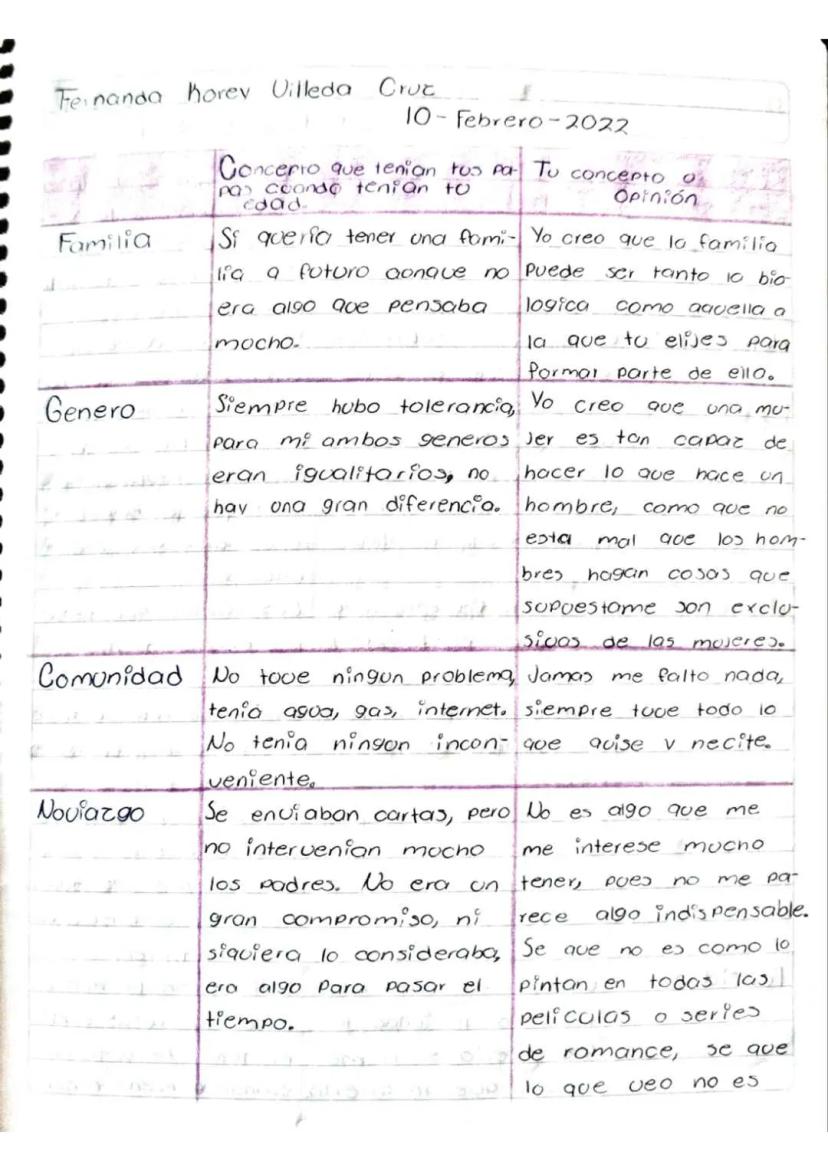 Fernanda Korey Villeda Cruz
10-Febrero-2022
Concepto que tenian tus pa-
pas cuando tenían tu
edad.
Tu concepto u
Opinión
Familia
Si quería tener una fami-
lia a futuro aunque no
era algo que pensaba
mucho.
Yo creo que la familia
puede ser tanto la bio-
logica como aquella a
la que tu elijes para
formar parte de ella.
Genero
Siempre hubo tolerancia,
para mi ambos generos
eran igualitarios, no
hay una gran diferencia.
Yo creo que una mu-
jer es tan capaz de
hacer lo que hace un
hombre, como que no
esta mal que los hom-
bres hagan cosas que
supuestame son exclu-
sivas de las mujeres.
Comunidad
No tuve ningun problema,
tenia agua, gas, internet.
No tenia ningun incon-
veniente.
Jamas me falto nada,
siempre tuve todo lo
que quise y necite.
Noviazgo
Se enviaban cartas, pero
no intervenian mucho
los padres. No era un
gran compromiso, ni
siquiera lo consideraba,
era algo para pasar el
tiempo.
No es algo que me
me interese mucho
tener, pues no me pa-
rece algo indispensable.
Se que no es como lo
pintan en todas las
películas o series
de romance, se que
lo que veo no es